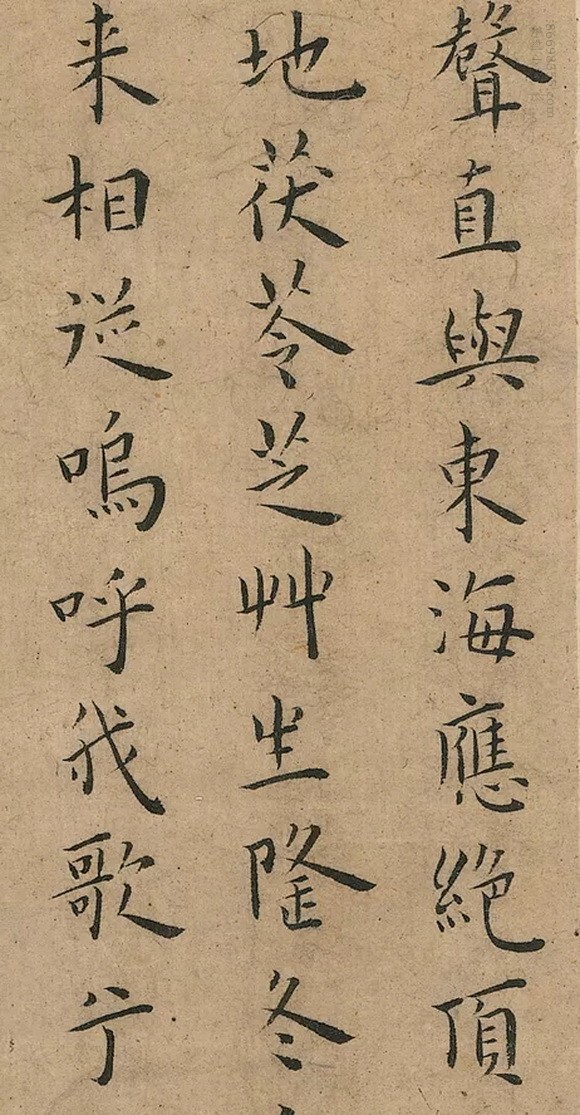 聲直與東海應絕頂
地茯苓芝艸生隆冬
来相從嗚呼我歌兮